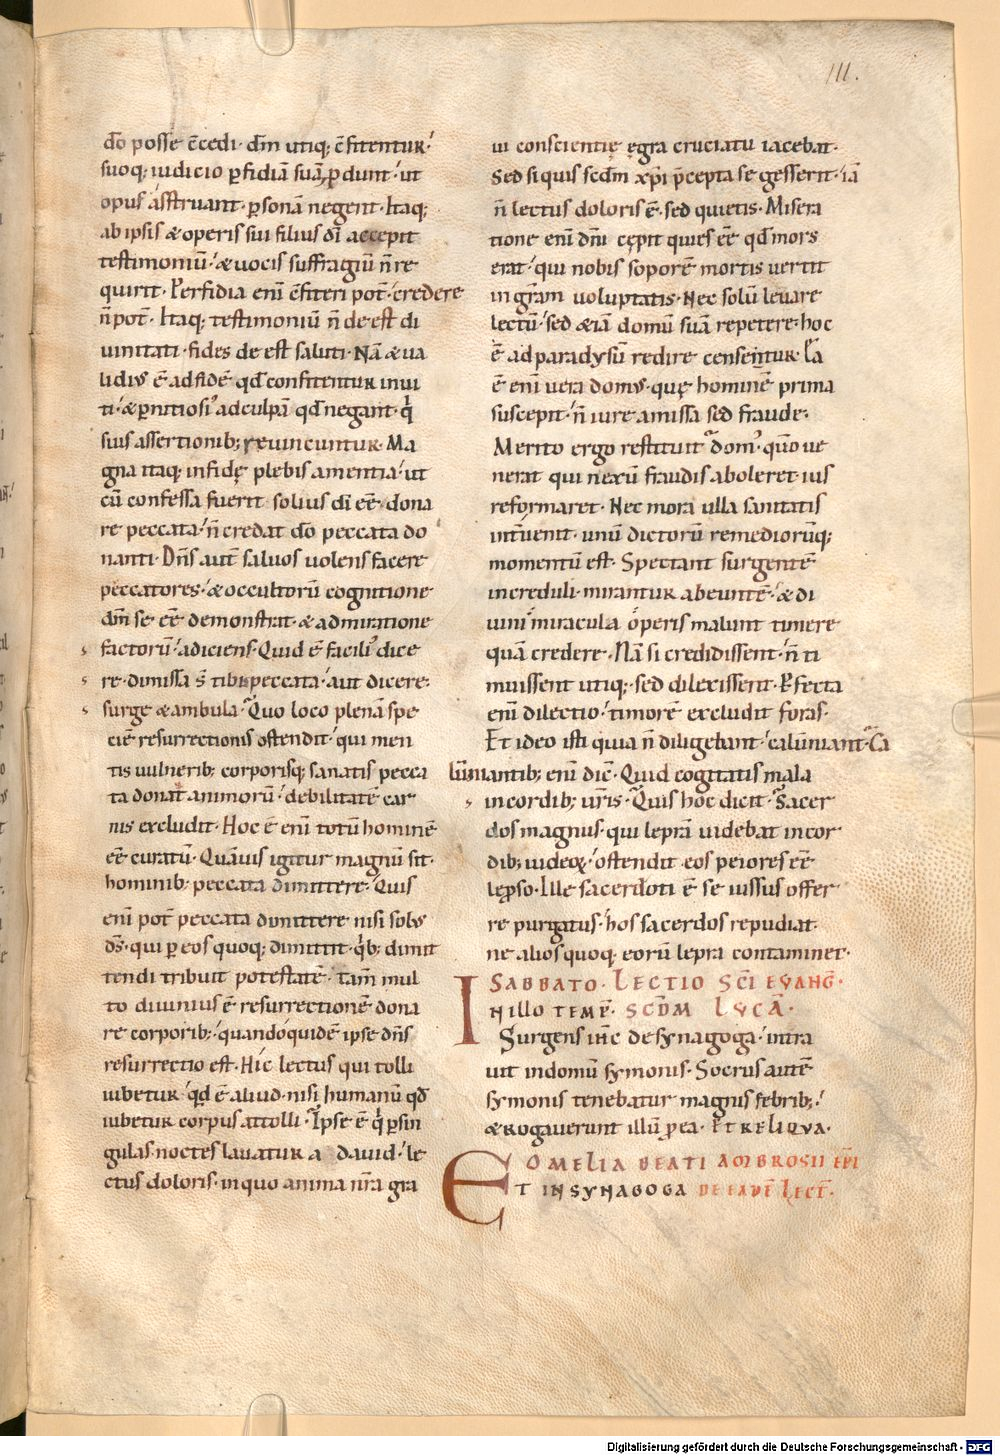 III.
dō posse c̄cedi· dm̄ utiq; c̄fitentur·'
suoq; iudicio p̱fidiā suā p̱dunt·' ut
opus astruant· p̱sonā negent· Itaq;
ab ipsis & operis sui filius dī accepit
testimoniū·' & uocis suffragiū n̄ re
quirit· Perfidia enī c̄fiteri pot̄· credere
n̄ pot̄· Itaq; testimoniū n̄ de est di
uinitati· fides de est saluti· Nā & ua
lidiꝰ ē ad fidē qđ confitentur inui
ti·' & p̱nitiosiꝰ ad culpā qđ negant q̍
suis assertionib; reuincuntur· Ma
gna itaq; infidę plebis amentia·' ut
cū confessa fuerit solius dī eē· dona
re peccata·' n̄ credat dō peccata do
nanti· Dn̄s aut̄ saluos uolens facere
peccatores·' & occultorū cognitione
dm̄ se eē demonstrat· & admiratione
factorū·' adiciens· Quid ē faciliꝰ dice
re· dimissa s̄ tibi peccata·' aut dicere:
surge & ambula· Quo loco plenā spe
ciē resurrectionis ostendit·' qui men
tis uulnerib; corporisq; sanatis pecca
ta donat animorū·' debilitatē car
nis excludit· Hoc ē enī totū hominē
eē curatū· Quāuis igitur magnū sit·
hominib; peccata dimittere· Quis
enī pot̄ peccata dimittere nisi solꝰ
ds̄· qui p̱ eos quoq; dimittit· q̍b; dimit
tendi tribuit potestatē· tam̄ mul
to diuinius ē resurrectionē dona
re corporib;·' quando quidē ipse dn̄s
resurrectio est· Hic lectus qui tolli
iubetur·' qđ ē aliud· nisi humanū qđ
iubetur corpus attolli·' Ipse ē q̍ p̱ sin
gulas noctes lauatur a dauid·' le
ctus doloris· in quo anima nr̄a gra
ui conscientię ęgra cruciatu iacebat·
Sed si quis scđm xp̄i p̄cepta se gesserit·' iā
n̄ lectus doloris ē· sed quietis· Misera
tione enī dn̄i cępit quies eē qđ mors
erat·' qui nobis soporē mortis uertit
in gr̄am uoluptatis· Nec solū leuare
lectū·' sed &iā domū suā repetere·' hoc
ē ad paradysū redire censentur· Ipa
ē enī uera domꝰ· quę hominē prima
suscepit·' n̄ iure amissa sed fraude·
Merito ergo restituit̄ domꝰ· qm̄ ue
nerat qui nexū fraudis aboleret· ius
reformaret· Nec mora ulla sanitatis
int̄uenit· unū dictorū remediorūq;
momentū est· Spectant surgentē
increduli· mirantur abeuntē·' & di
uini miracula operis malunt timere
quā credere· Nā si credidissent· n̄ ti
muissent utiq;· sed dilexissent· P̱fecta
enī dilectio·' timorē excludit foras·
Et ideo isti quia n̄ diligebant·' calūniant̄· Ca
lūniantib; enī dic̄· Quid cogitatis mala
in cordib; ur̄is· Quis hoc dicit· Sacer
dos magnus· qui leprā uidebat in cor
dib; iudeoꝝ·' ostendit eos peiores eē
lep̱so· Ille sacerdoti ē se iussus offer
re purgatus· hos sacerdos repudiat·
ne alios quoq; eorū lepra contaminet·
SABBATO· LECTIO SC̄I EVANḠ·
IN ILLO TEMP̄· SCDM LVCĀ·
Surgens ih̄c de synagoga·' intra
uit in domū symonis· Socrus autē
symonis tenebatur magnis febrib;·'
& rogauerunt illū p̱ ea· ET RELIQVA·
OMELIA BEATI AMBROSII EP̄I
ET IN SYNAGOGA DE EADĒ LECT̄·
Digitalisierung gefördert durch die Deutsche Forschungsgemeinschaft - DFG